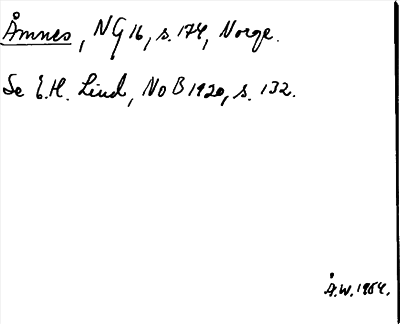 Åmnes, NG 16, s. 174, Norge.
Se E.H. Lind, NoB 1920, s. 132.
Å.W. 1954.